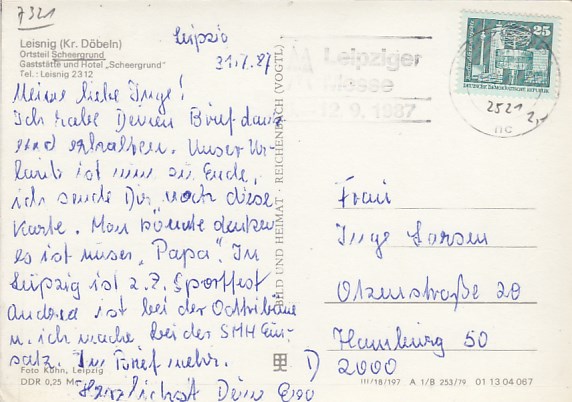 7321
Leisnig (Kr. Döbeln)
Ortsteil Scheergrund
Gaststätte und Hotel „Scheergrund"
Tel.: Leisnig 2312
Leipzig
31.7.87
Meine liebe Inge!
Ich habe Deinen Brief dankend erhalten. Unser Ur-
laub ist nun zu Ende,
ich sende Dir noch diese
Karte. Man könnte denken
es ist unser „Papa". In
Leipzig ist z. Z. Sportfest
Andrea ist bei der Osttribüne
u. ich mache bei der SMH Ein-
satz. Im Brief mehr.
Herzlichst Deine
Foto Kühn, Leipzig
DDR 0,25 M
BILD UND HEIMAT · REICHENBACH (VOGTL)
Leipziger
Messe
12. 9. 1987
25
DEUTSCHE DEMOKRATISCHE REPUBLIK
2521
Frau
Inge Larsen
Otzenstraße 20
Hamburg 50
D 2000
III/18/197 A 1/B 253/79 01 13 04 067